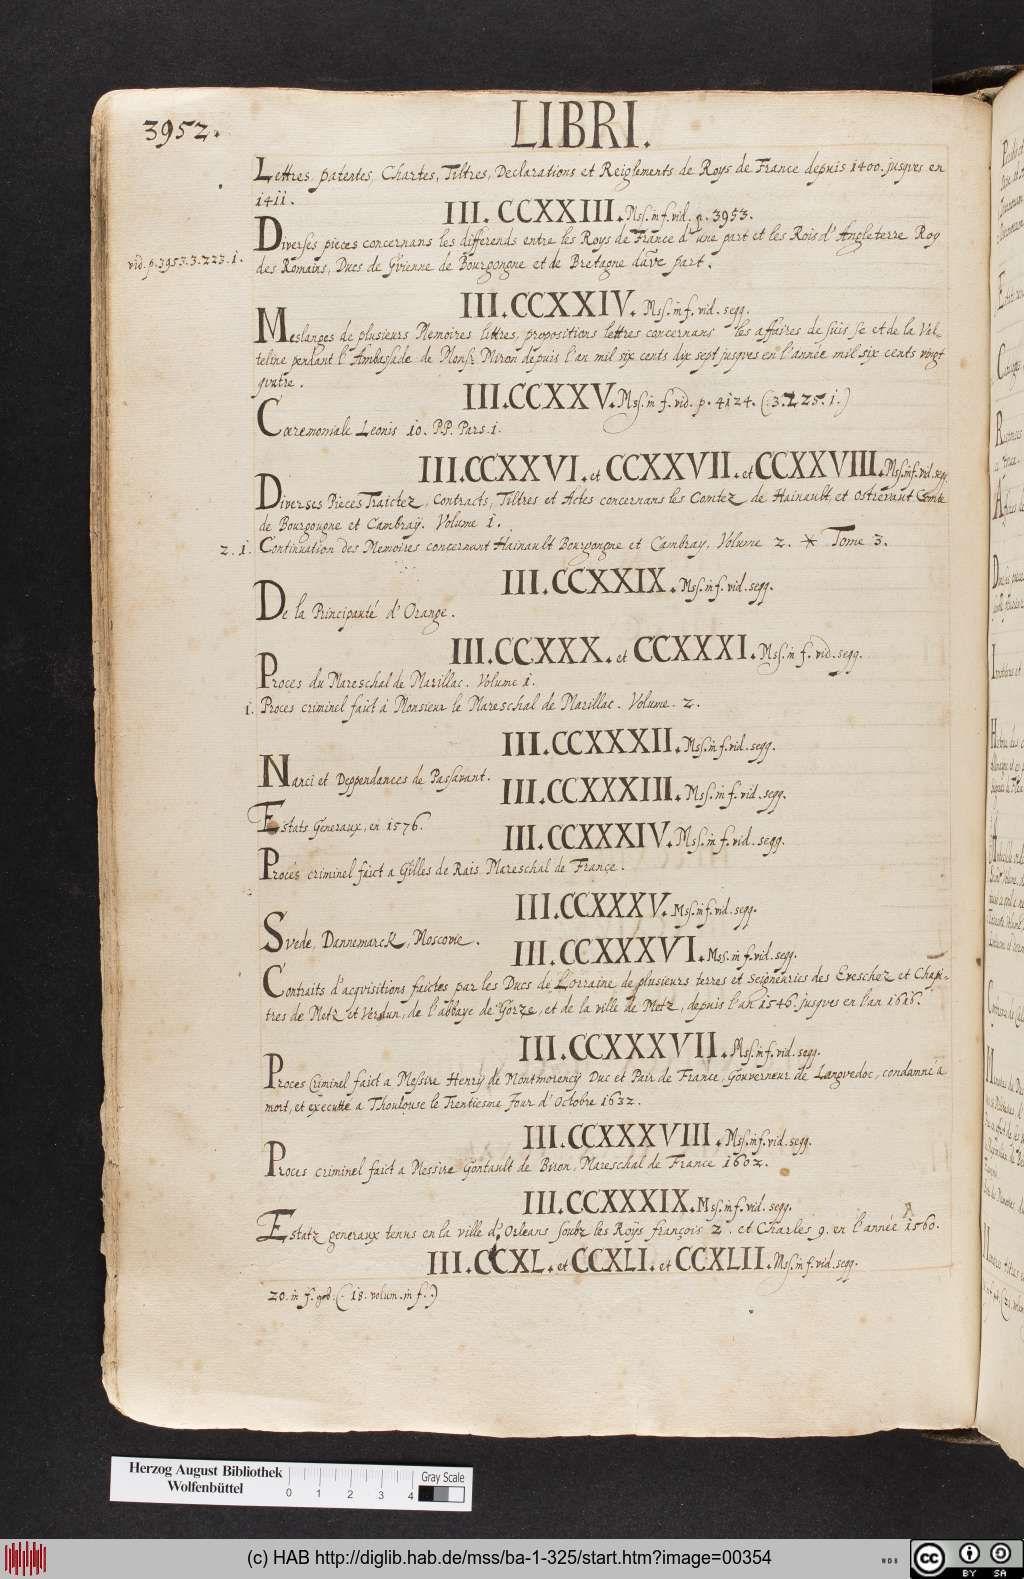 3952.
LIBRI.
Lettres patentes, Chartes, Tiltres, Declarations et Reiglements de Roys de France depuis 1400. jusques en
1411.
III. CCXXIII. Mss. in f. vid. p. 3953.
Diverses pieces concernans les differends entre les Roys de France d'une part et les Rois d'Angleterre Roy
vid. p. 3953. 3. 223. 1.
des Romains, Ducs de Gvienne de Bourgongne et de Bretagne d'avc part.
III. CCXXIV. Mss. in f. vid. segg.
Meslanges de plusieurs Memoires littres, propositions lettres concernans les affaires de Suis se et de la Val-
teline pendant l'Ambassade de Mons. Miron depuis l'an mil six cents dix sept jusques en l'année mil six cents vingt
qvatre.
III. CCXXV. Mss. in f. vid. p. 4124. (:3. 225. 1.)
Cæremoniale Leonis 10. P.P. Pars. 1.
III. CCXXVI. et CCXXVII. et CCXXVIII. Mss. in f. vid. segg.
Diverses Pieces Traictez, Contracts, Tiltres et Actes concernans les Comtez de Hainault, et Ostrevant Comte
de Bourgougne et Cambray. Volume 1.
2. 1. Continuation des Memoires concernant Hainault Bourgongne et Cambray. Volume 2. * Tome 3.
III. CCXXIX. Mss. in f. vid. segg.
De la Principauté d'Orange.
III. CCXXX. et CCXXXI. Mss. in f. vid. segg.
Proces du Mareschal de Marillac. Volume 1.
1. Proces criminel faict à Monsieur le Mareschal de Marillac. Volume. 2.
III. CCXXXII. Mss. in f. vid. segg.
Nanci et Deppendances de Passavant.
III. CCXXXIII. Mss. in f. vid. segg.
Estats Generaux, en 1576.
III. CCXXXIV. Mss. in f. vid. segg.
Proces criminel faict a Gilles de Rais Mareschal de France.
III. CCXXXV. Mss. in f. vid. segg.
Svede, Dannemarck, Moscovie.
III. CCXXXVI. Mss. in f. vid. segg.
Contraits d'acqvisitions faictes par les Ducs de Lorraine de plusieurs terres et seigneuries des Eveschez et Chapi-
tres de Metz et Verdun, de l'abbaye de Gorze, et de la ville de Metz, depuis l'an 1546. jusqves en l'an 1616.
III. CCXXXVII. Mss. in f. vid. segg.
Proces Criminel faict a Messire Henry de Montmorency Duc et Pair de France, Gouverneur de Langvedoc, condamné a
mort, et executté a Thoulouse le Trentiesme Jour d'Octobre 1632.
III. CCXXXVIII. Mss. in f. vid. segg.
Proces criminel faict a Messire Gontault de Biron, Mareschal de France 1602.
III. CCXXXIX. Mss. in f. vid. segg.
Estatz generaux tenus en la ville d'Orleans soubz les Roÿs françois 2. et Charles 9. en l'année 1560.
III. CCXL. et CCXLI. et CCXLII. Mss. in f. vid. segg.
20. in f. god. (: 18. volum. in f. :)
Herzog August Bibliothek
Wolfenbüttel
0 1 2 3 4
Gray Scale
(c) HAB http://diglib.hab.de/mss/ba-1-325/start.htm?image=00354
WDB
cc BY SA